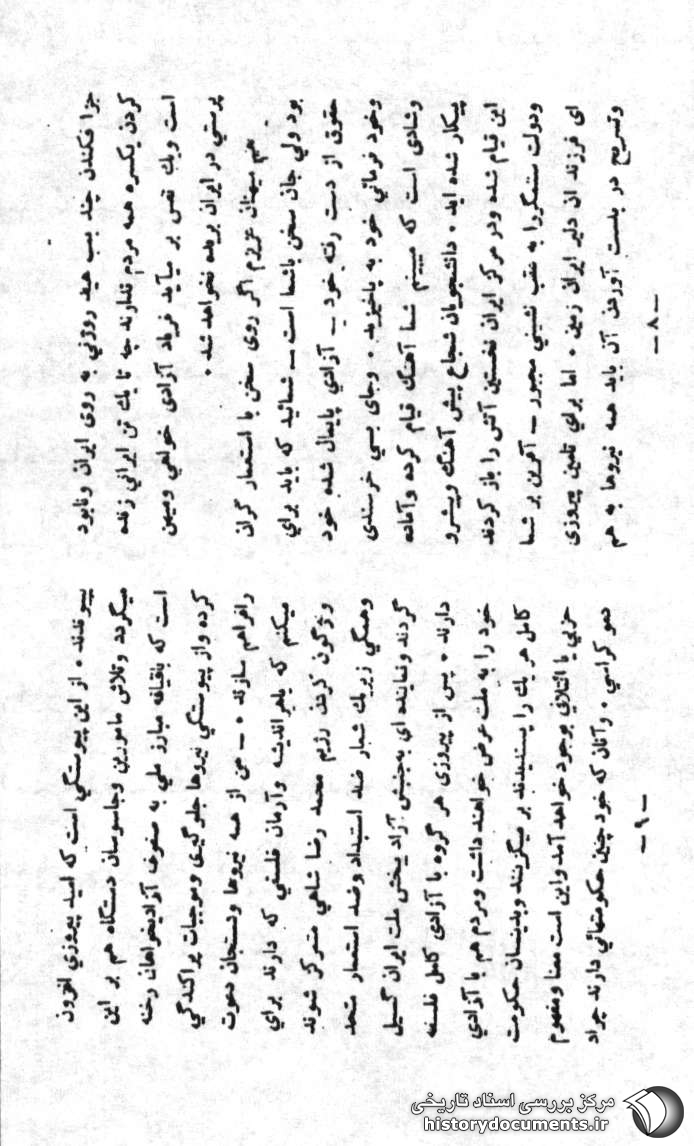 جزا فکندن چند بمب هیدروژنی به روی ایران ونابود
کردن یکسره همه مردم ندارند چه تا یك تن ایرانی زنده
است ویك نفس بر میآید فریاد آزادی خواهی ومیهن
پرستی در ایران بریده نخواهد شد .
هم میهنان عزیزم اگر روی سخن با استعمار گران
بود ولی جان سخن باشما است ـ شمائید که باید برای
حقوق از دست رفته خود ـ آزادی پایمال شده خود
وخود فرمائی خود به پاخیزید . وجای بسی خرسندی
وشادی است که میبینم شما آهنگ قیام کرده وآماده
پیکار شده اید . دانشجویان شجاع پیش آهنگ وپیشرو
این قیام شدند ودر مرکز ایران نخستین آتش را باز کردند
ودولت ستمگررا به عقب نشینی مجبور ـ آفرین بر شما
ای فرزند ان دلیر ایران زمین . اما برای تامین پیروزی
وتسریح در بدست آوردن آن باید همه نیروها به هم
ـ ۸ ـ
پیوندند . از این پیوستگی است که امید پیروزی افزون
میگردد وتلاش مامورین وجاسوسان دستگاه هم بر این
است که باقیافه مبارز ملی به صفوف آزادیخواهان رخنه
کرده واز پیوستگی نیروها جلو گیری وموجبات پراکندگی
رافراهم سازند . ـ من از همه نیروها ودستجات دعوت
میکنم که باهر اندیشه وآرمان فلسفی که دارند برای
واژگون کردن رژیم محمد رضا شاهی متمرکز شوند
وهمگی زیر یك شعار ضد استبداد وضد استعمار متحد
گردند ونماینده ای به جنبش آزاد یبخش ملت ایران گسیل
دارند . پس از پیروزی هر گروه با آزادی کامل فلسفه
خود را به ملت عرض خواهند داشت ومردم هم با آزادی
کامل هر یك را پسندیدند بر میگزینند وبدینسان حکومت
حزبی یا ائتلافی بوجود خواهد آمد واین است معنا ومفهوم
دمو کراسی . وآنان که خود چنین حکومتهائی دارند چراد
ـ ۹ ـ
مرکز بررسی اسناد تاریخی
historydocuments.ir